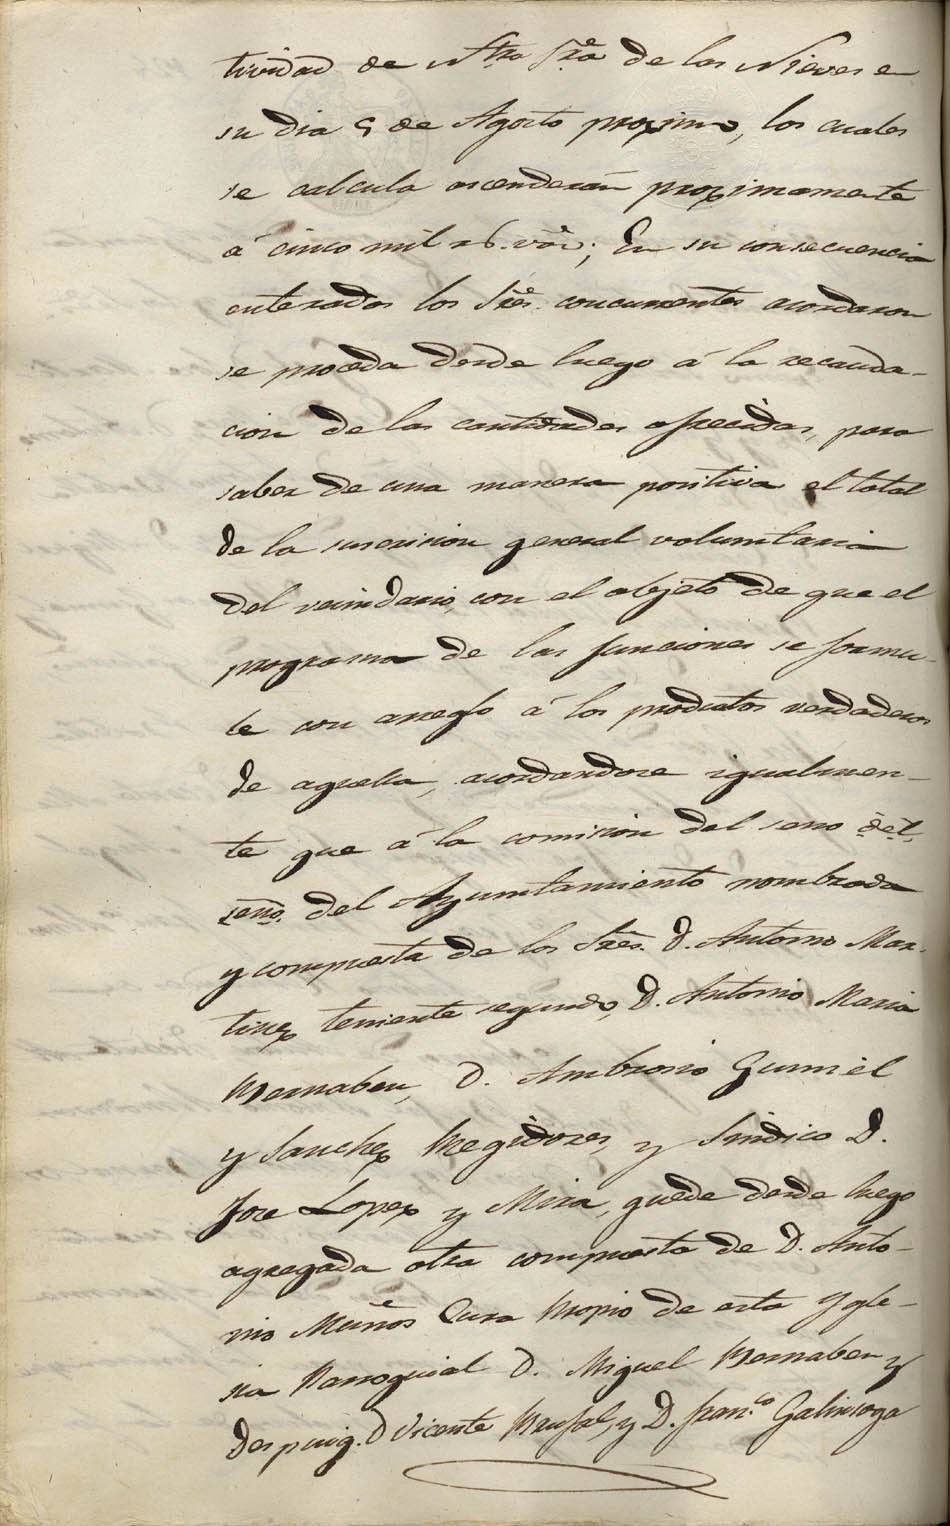 tividad de Ntra Sra de las Nieves en
su dia 5 de Agosto proximo, los cuales
se calcula ascenderán proximamente
á cinco mil rs. von; En su consecuencia
enterados los Sres. concurrentes acordaron
se proceda desde luego á la recauda-
cion de las cantidades ofrecidas, para
saber de una manera positiva el total
de la suscricion general voluntaria
del vecindario, con el objeto de que el
programa de las funciones se formu-
le con arreglo á los productos verdaderos
de aquella, acordandose igualmen-
te que á la comision del seno del
seno del Ayuntamiento nombrada
y compuesta de los Sres. D. Antonio Mar-
tinez teniente segundo, D. Antonio Maria
Bernabeu, D. Ambrosio Gumiel
y Sanchez Regidores, y Sindico D.
Jose Lopez y Mira, quede desde luego
agregada otra compuesta de D. Anto-
nio Muñoz Cura Propio de esta Ygle-
sia Parroquial D. Miguel Bernabeu y
Despuig. D Vicente y D. Franco. Galinsoga